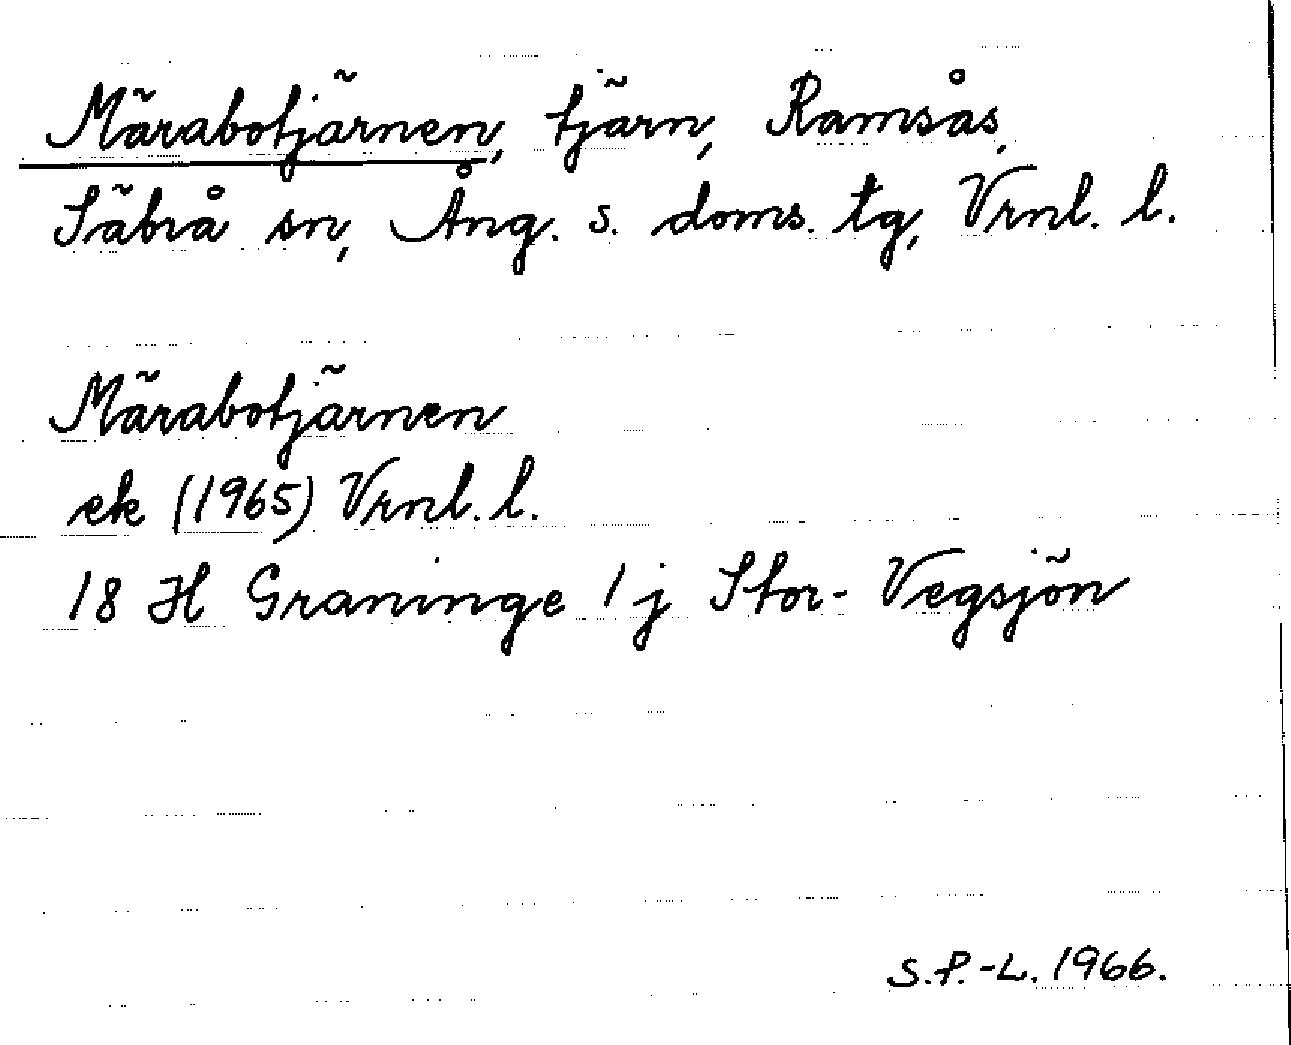 Märabotjärnen, tjärn, Ramsås,
Säbrå sn, Ång. s. doms. tg, Vrnl. l.
Märabotjärnen
ek (1965) Vrnl. l.
18 H Graninge 1 j Stor-Vegsjön
S.P.-L. 1966.